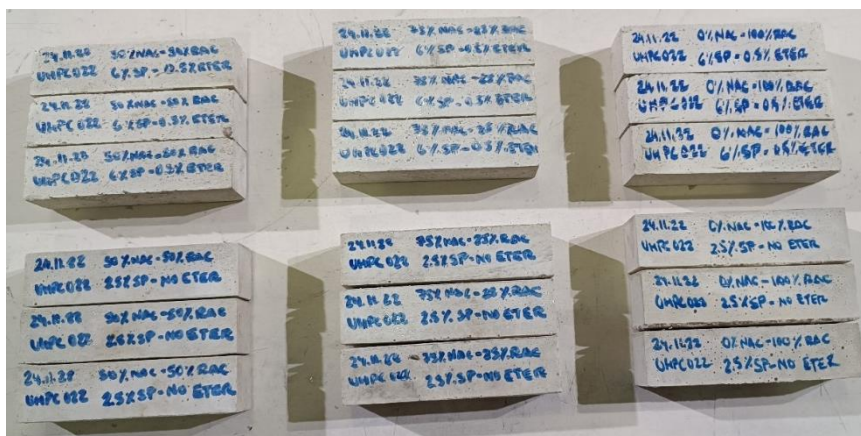 24.11.22 50%NAC-50%RAC
UHPC022 6%SP-0.5%ETER
24.11.22 50%NAC-50%RAC
UHPC022 6%SP-0.5%ETER
24.11.22 50%NAC-50%RAC
UHPC022 6%SP-0.5%ETER
24.11.22 75%NAC-25%RAC
UHPC022 6%SP-0.5%ETER
24.11.22 75%NAC-25%RAC
UHPC022 6%SP-0.5%ETER
24.11.22 75%NAC-25%RAC
UHPC022 6%SP-0.5%ETER
24.11.22 0%NAC-100%RAC
UHPC022 6%SP-0.5%ETER
24.11.22 0%NAC-100%RAC
UHPC022 6%SP-0.5%ETER
24.11.22 0%NAC-100%RAC
UHPC022 6%SP-0.5%ETER
24.11.22 50%NAC-50%RAC
UHPC022 2.5%SP-NO ETER
24.11.22 50%NAC-50%RAC
UHPC022 2.5%SP-NO ETER
24.11.22 50%NAC-50%RAC
UHPC022 2.5%SP-NO ETER
24.11.22 75%NAC-25%RAC
UHPC022 2.5%SP-NO ETER
24.11.22 75%NAC-25%RAC
UHPC022 2.5%SP-NO ETER
24.11.22 75%NAC-25%RAC
UHPC022 2.5%SP-NO ETER
24.11.22 0%NAC-100%RAC
UHPC022 2.5%SP-NO ETER
24.11.22 0%NAC-100%RAC
UHPC022 2.5%SP-NO ETER
24.11.22 0%NAC-100%RAC
UHPC022 2.5%SP-NO ETER